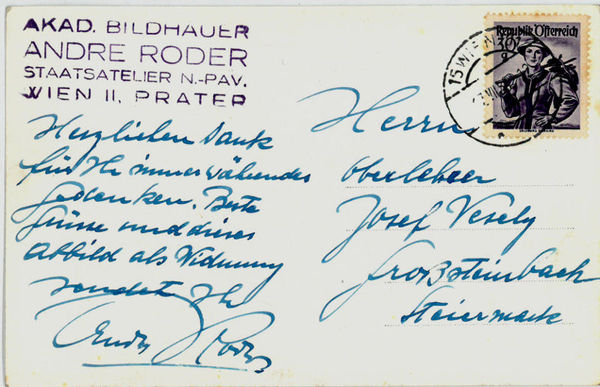 AKAD. BILDHAUER
ANDRE RODER
STAATSATELIER N.-PAV.
WIEN II, PRATER
Herzlichen Dank
für Ihr immerwährendes
gedenken. Beste
Grüsse und dieses
Abbild als Widmung
sendet Ihr
Andre Roder
Republik Österreich
30
g
15 WIEN
Herrn
Oberlehrer
Josef Vesely
Großsteinbach
Steiermark